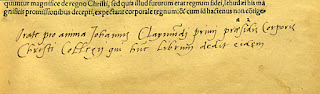 quuntur magnifice de regno Christi, sed quia illud futurum erat regnum fidei, Iehudei his ma
gnificis promissionibus decepti, expectant corporale regnum: &c̄ cum id hactenus non contige-
Orate pro anima Iohannis Claymundi primi præsidis Corporis
Christi Collegii qui hunc librum dedit eidem